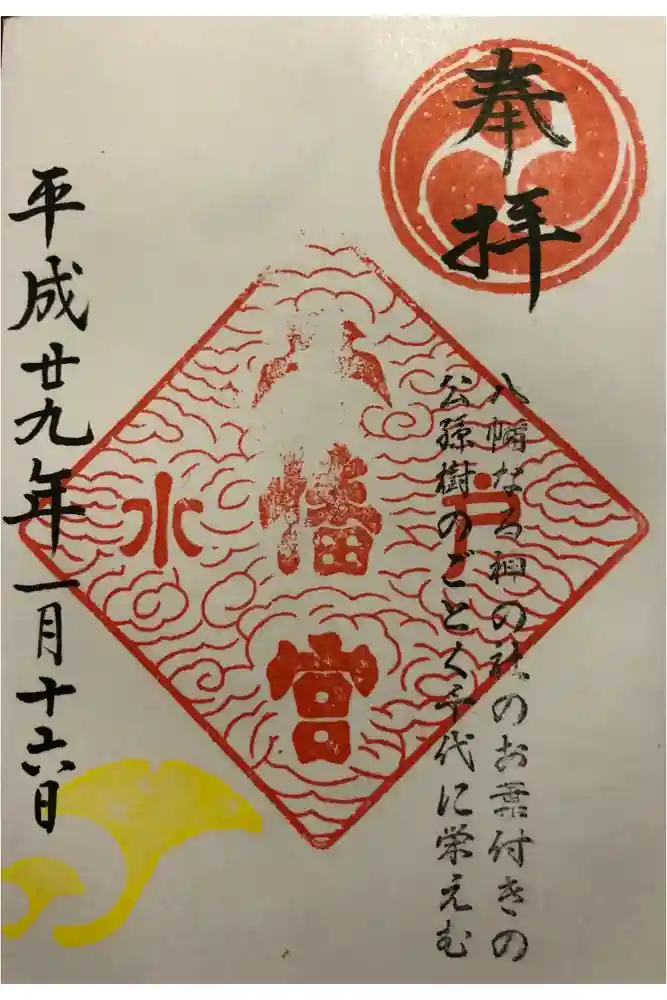 奉拝
八幡なる神の社のお葉付きの
公孫樹のごとく千代に栄えむ
水戸
八幡宮
平成廿九年一月十六日